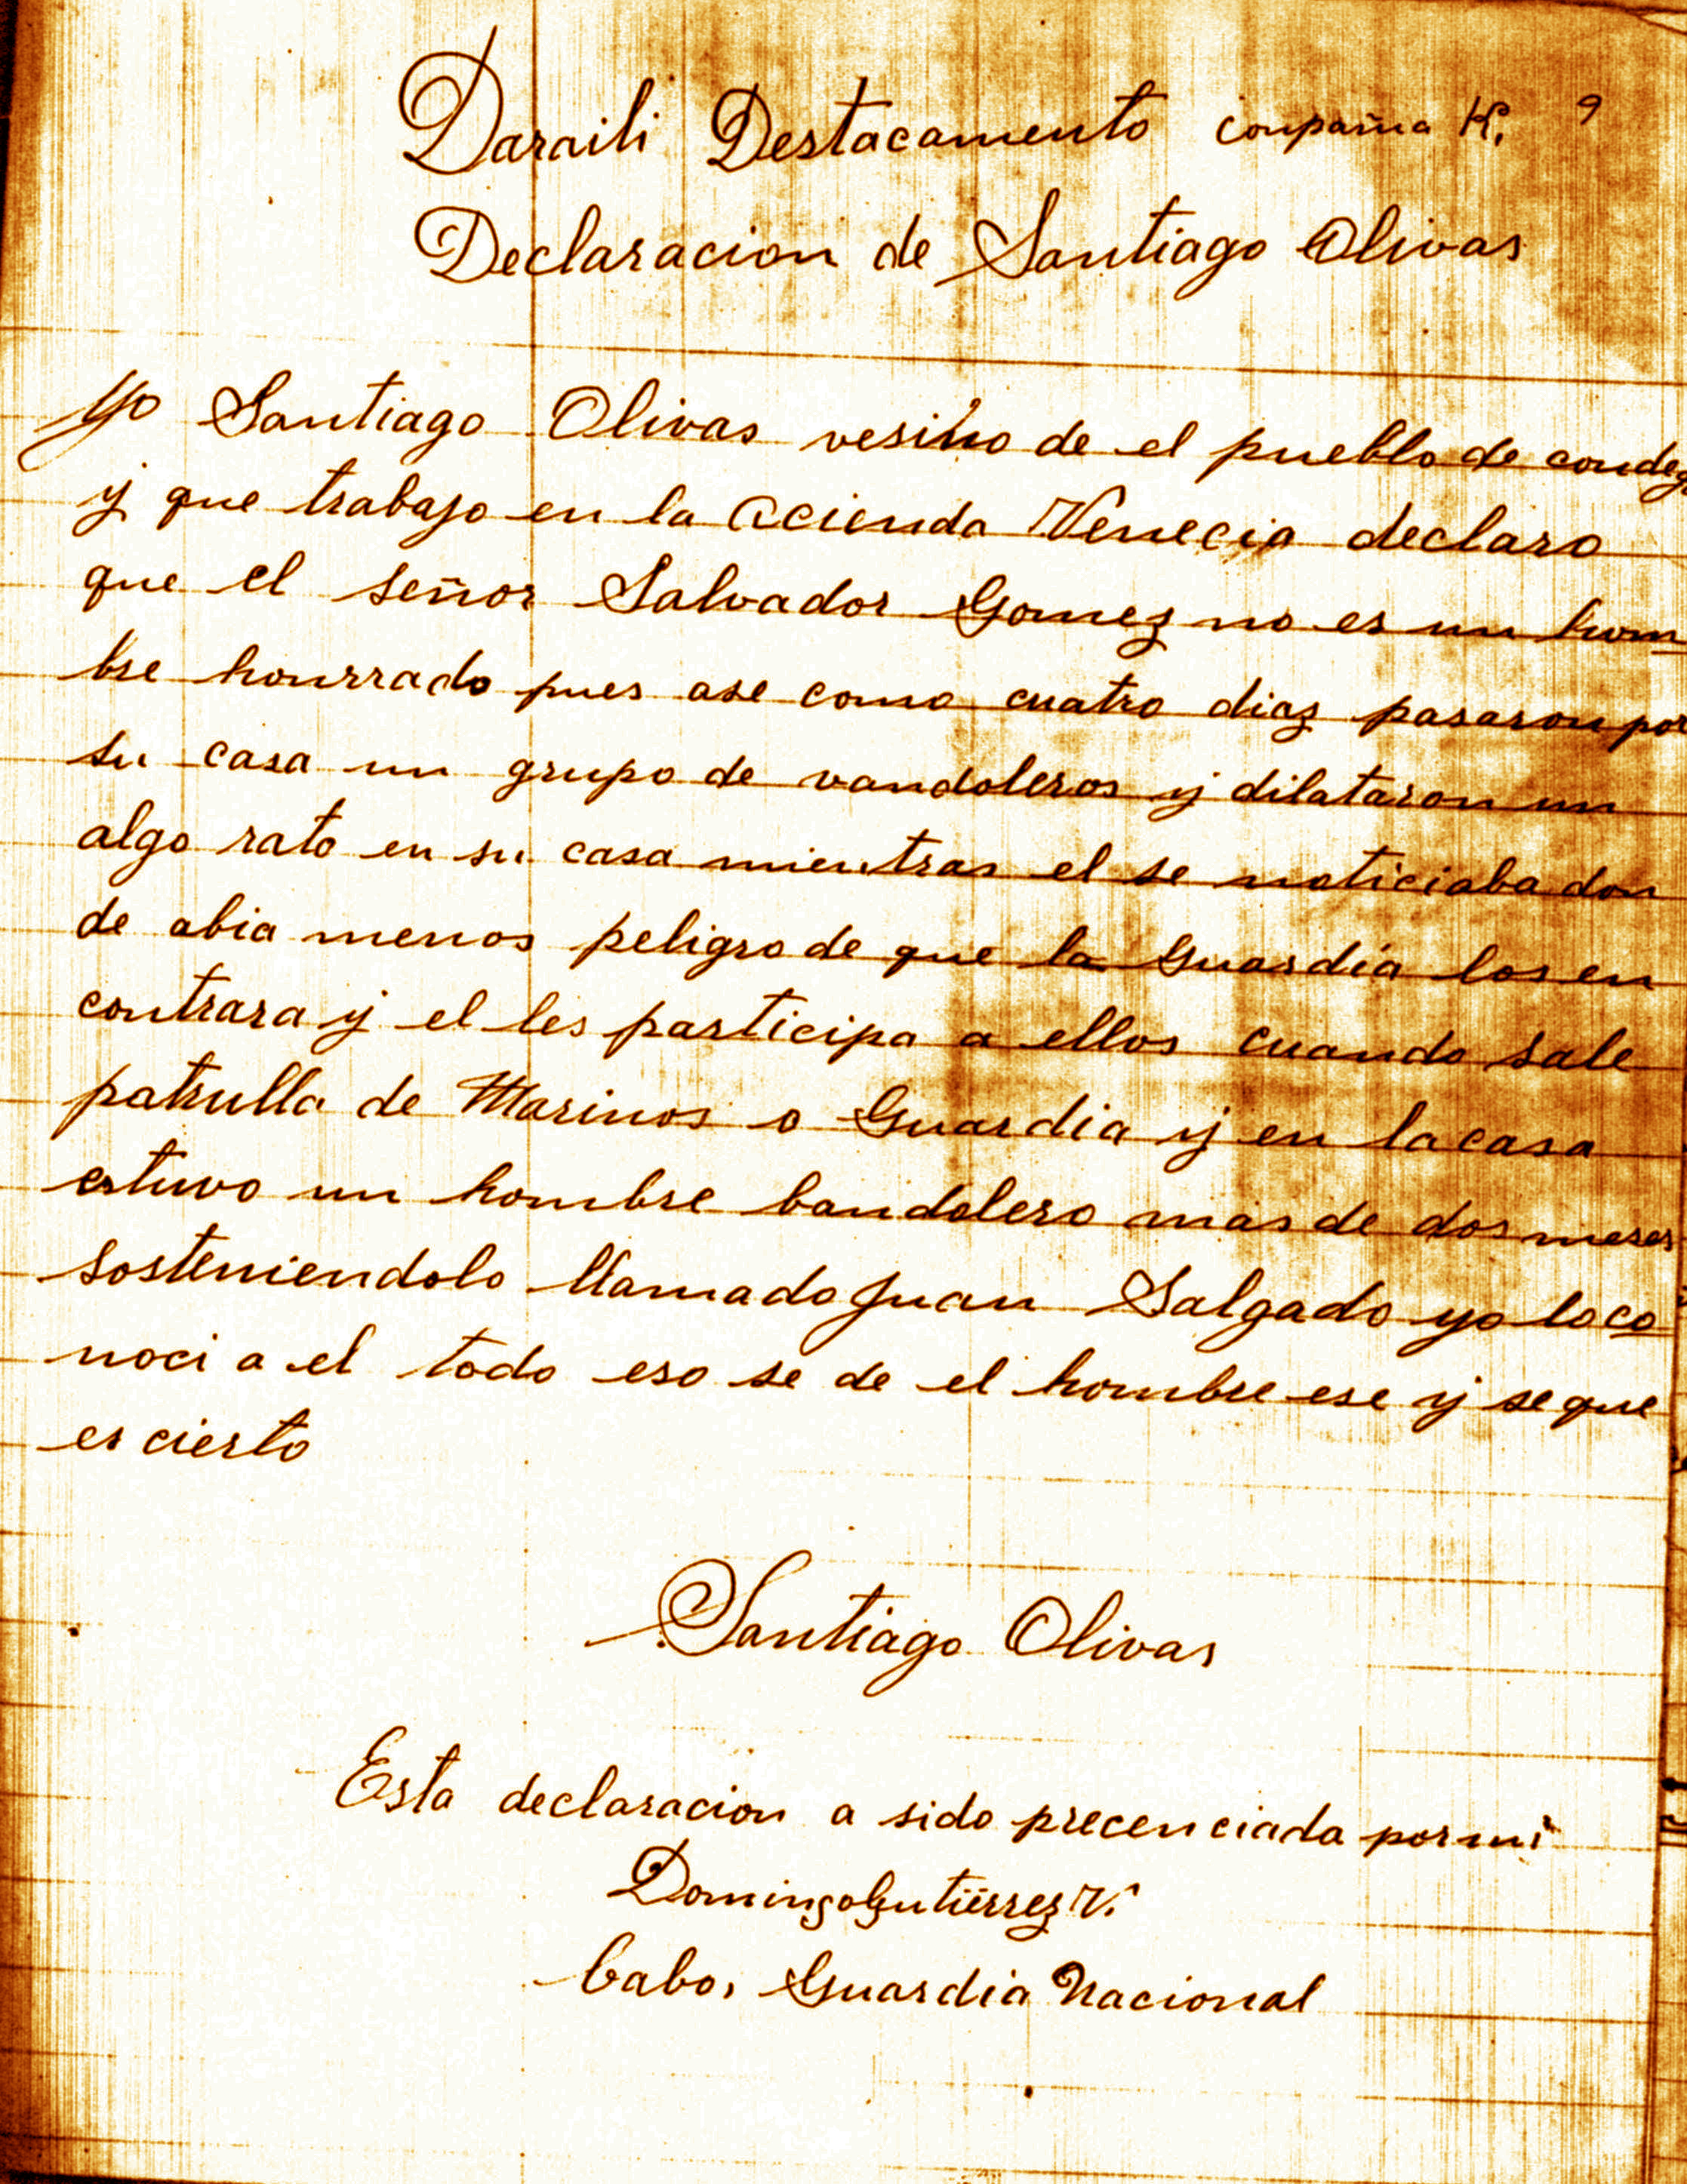 Daraili Destacamento conpañia K. 9
Declaracion de Santiago Olivas
Yo Santiago Olivas vesino de el pueblo de condeg
y que trabajo en la acienda Venecia declaro
que el señor Salvador Gomez no es un hom
bre honrrado pues ase como cuatro diaz pasaron por
su casa un grupo de vandoleros y dilataron un
algo rato en su casa mientras el se noticiaba don
de abia menos peligro de que la Guardia los en
contrara y el les participa a ellos cuando sale
patrulla de Marinos o Guardia y en la casa
estuvo un hombre bandolero mas de dos meses
sosteniendolo llamado Juan Salgado yo lo co
noci a el todo eso se de el hombre ese y se que
es cierto
Santiago Olivas
Esta declaracion a sido precenciada por mi
Domingo Gutiérrez V.
Cabo, Guardia Nacional